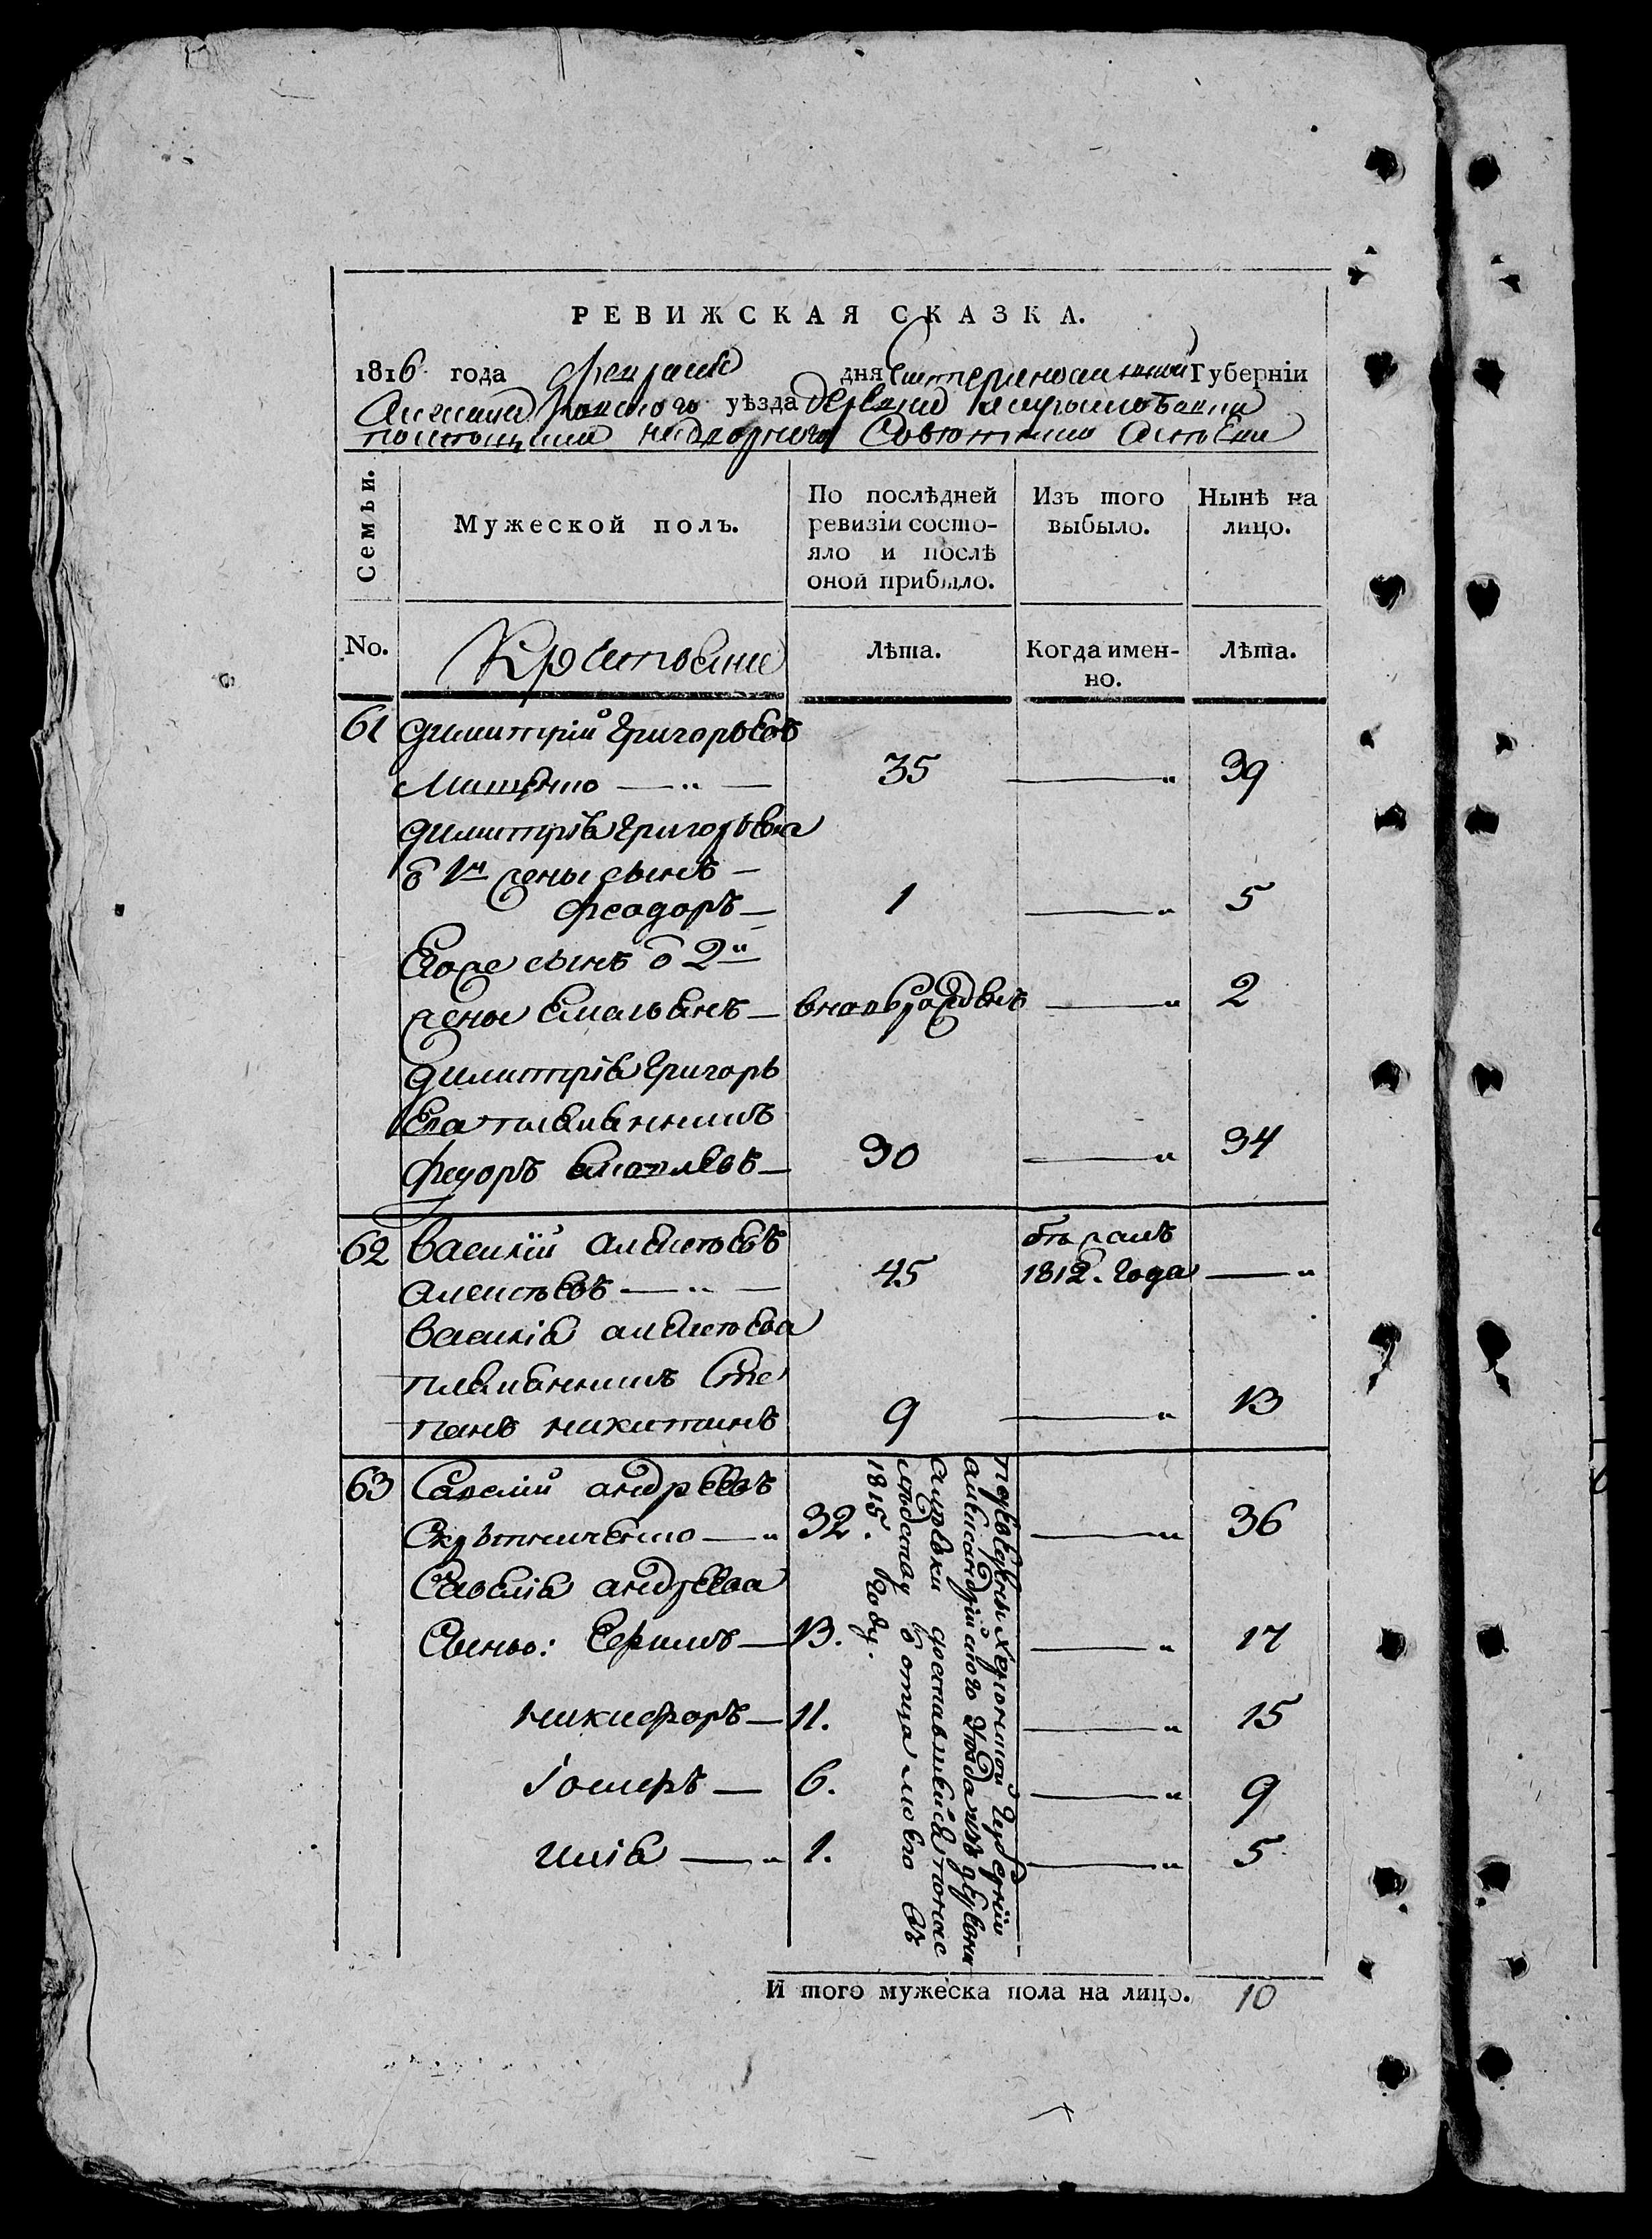 РЕВИЖСКАЯ СКАЗКА.
1816 года февраля дня Екатеринославской Губерніи
Александровского уѣзда деревни
помещика надворного Советника
Семьи.
Мужеской полъ.
По послѣдней
ревизіи состо-
яло и послѣ
оной прибыло.
Изъ того
выбыло.
Нынѣ на
лицо.
No.
Крестьяне
Лѣта.
Когда имен-
но.
Лѣта.
61 Димитрій Григорьевъ
Мищенко 35 39
Димитрія Григорьева
о 1й жены сынъ
Феодоръ 1 5
Егоже сынъ о 2й
жены Емельянъ вновьрожденъ 2
Димитрія Григорь
ева племянникъ
Федоръ 30 34
62 Василій Алексѣевъ
Алексѣевъ 45
бѣжалъ
1812. года
Василія Алексѣева
племянникъ Сте
панъ Никитинъ 9 13
63 Савелій Андреевъ
32. 36
Савелія Андреева
Сыньо: Ефимъ 13. 17
Никифоръ 11. 15
6. 9
Илія 1. 5
Переведены Херсонской Губерніи
Александрійского уѣзда изъ деревни
доставшейся по нас
лѣдству о отца моего въ
1815. году.
И того мужеска пола на лицо. 10